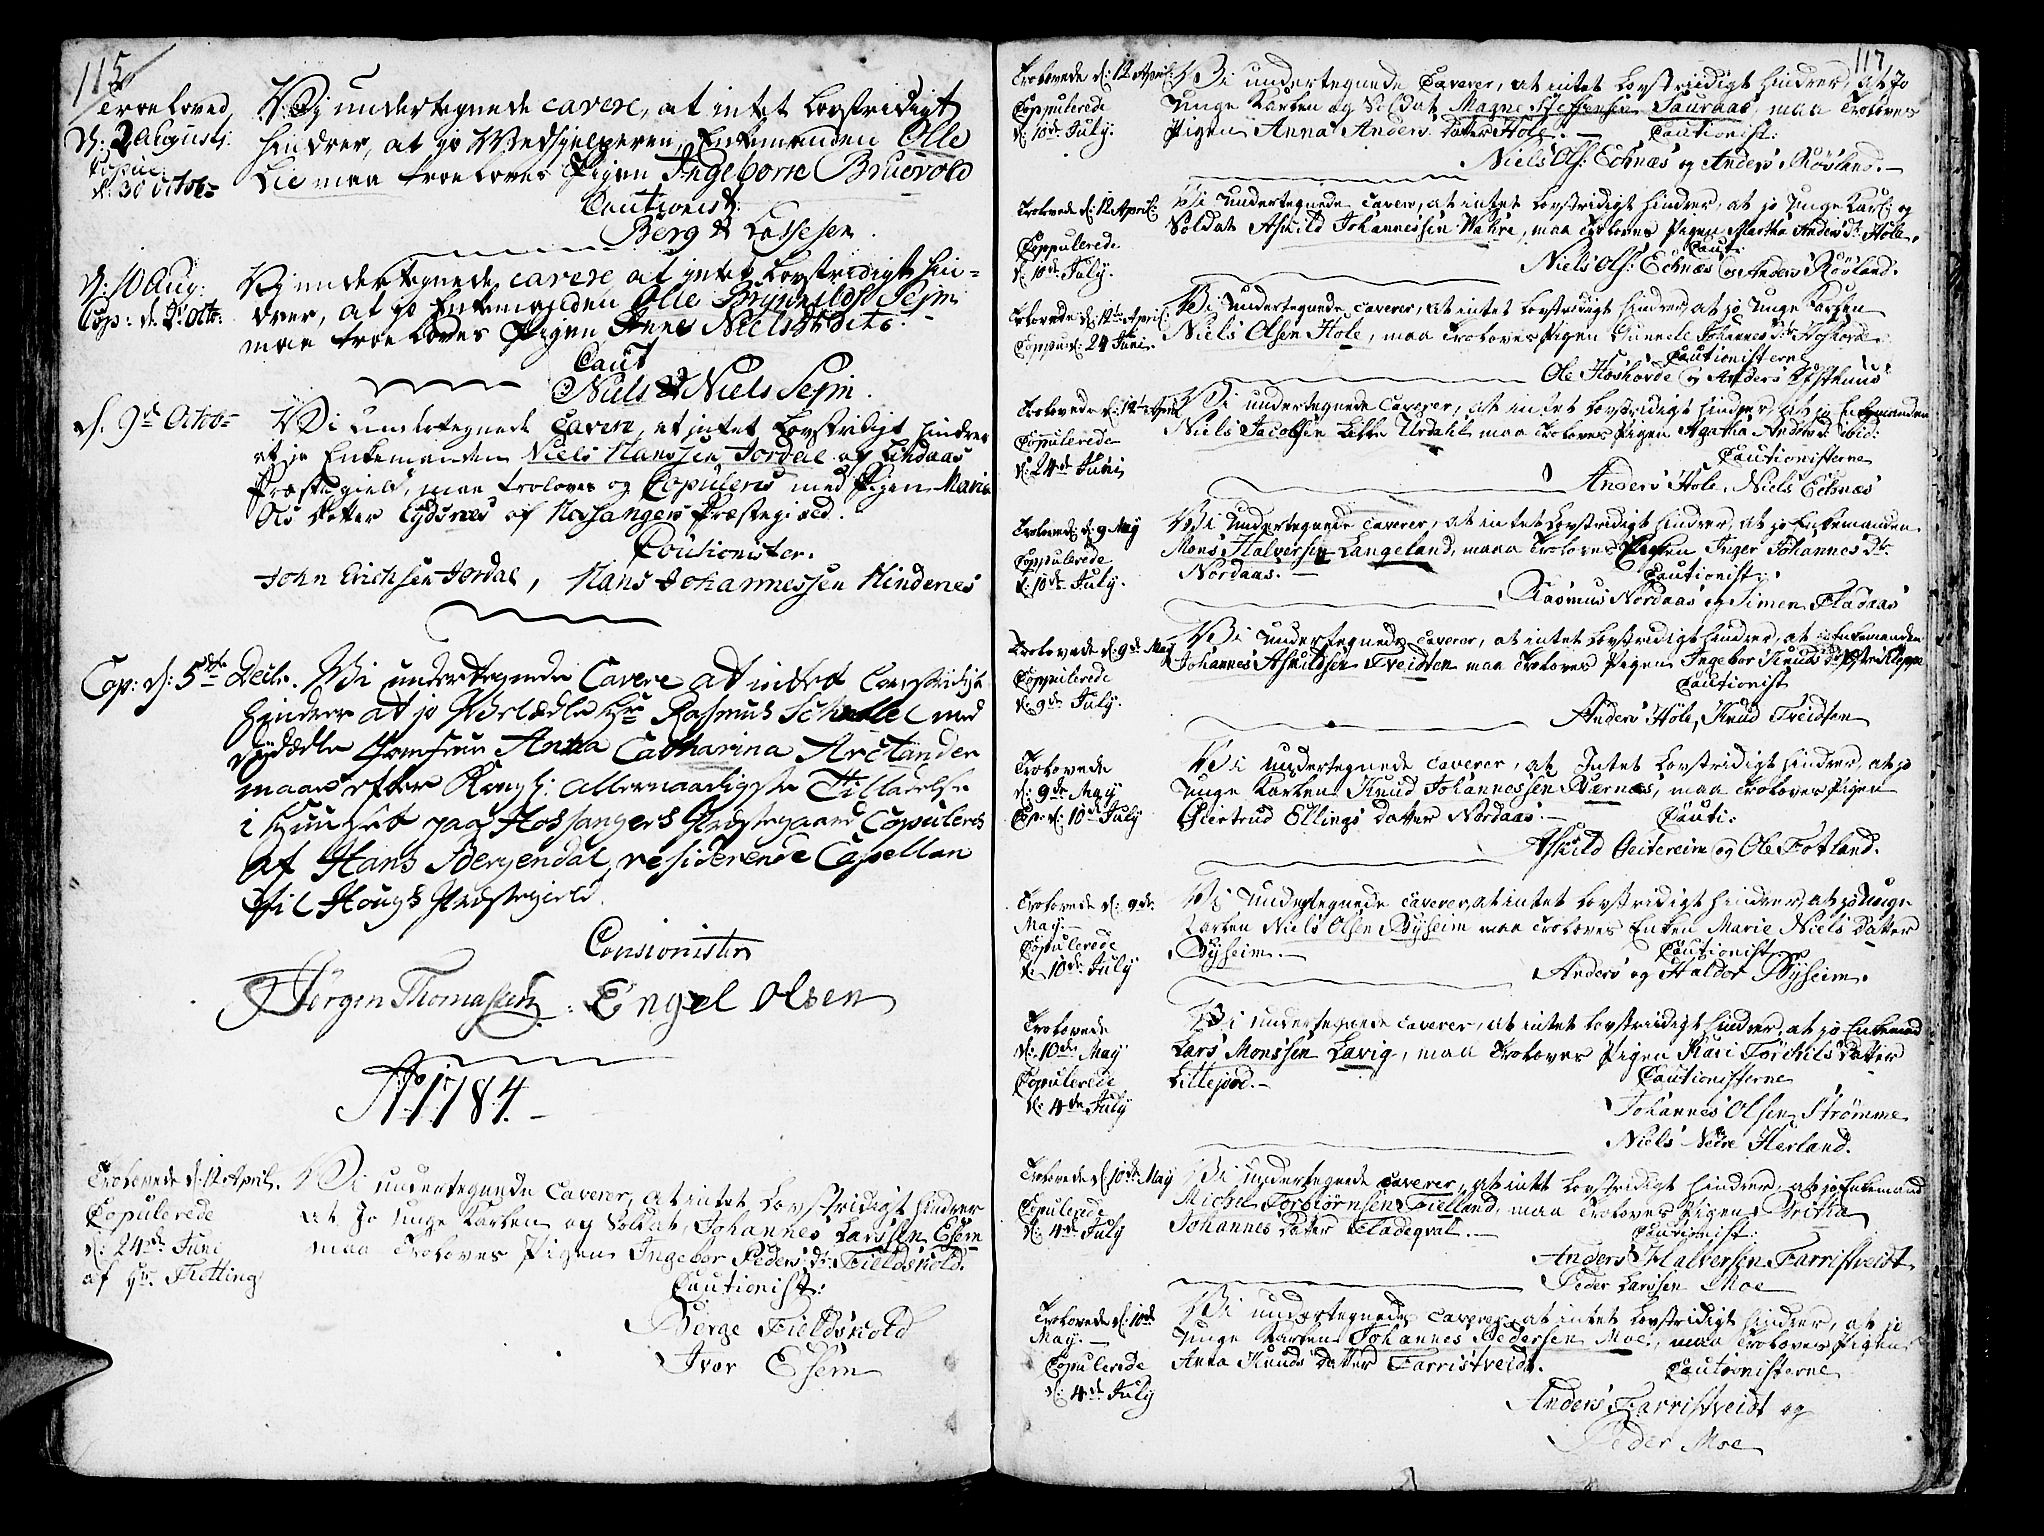 115
Troeloved
d: 2 Augusti
Copul:
d: 30 Octob:
Vi undertegnede cavere, at intet Lovstridigt
hindrer, at jo Medhjelperen, Enkemanden Olle
Lie maa troeloves Pigen Ingeborre Bruevold
Cautionist:
Berg & Lassesen.
d: 10 Aug:
Cop: d. Octo:
Vi undertegnede cavere, at intet Lovstridigt hin-
drer, at jo Enkemanden Olle Brynildst Sejm
maa troeloves Pigen Anne Niels dito.
Caut
Niels & Niels Sejm.
d. 9de Octob:
Vi undertegnede Cavere, at intet Lovstridigt hindrer
at jo Enkemanden Niels Hanssen Jordal af Lindaas
Præstegield, maa troloves og Copuleris med Pigen Marie
Ols Datter Eydsnes af Hossangers Præstegield.
Cautionister.
John Erichsen Jordal, Hans Johannessen Hindenes
Cop: d: 5te Decbr.
Vi undertegnede Cavere at intet Lovstridigt
hindrer at jo Velædle Hr Rasmus Schelle med
Dydædle Jomfrue Anna Catharina Arctander
maae efter Kongl: allernaadigste Tilladelse
i Huuset paa Hossangers Præstegaard Copuleres
af Hans Bergendal, residerende Capellan
til Hougs Præstegield.
Cautionister
Jørgen Thomassen. Engel Olsen
Ao 1784.
Trolovede d. 12 April.
Copulerede
d: 24de Juni
af Hr. Fletting
Vi undertegnede Caverer, at intet Lovstridigt hindrer
at Jo unge Karlen og Soldat, Johannes Larssen Esem
maa Troloves Pigen Ingebor Peders dr. Fieldskold.
Cautionist:
Børge Fieldskold
Iver Esem
117
Trolovede d: 12 April:
Coppulerede
d: 10de July.
Vi undertegnede Caverer, at intet Lovstridigt hindrer, at Jo
Unge Karlen og Soldat Magne Steffensen Sauraas, maa Troloves
Pigen Anna Anders Datter Hole. Cautionist:
Niels Ols: Echnæs og Anders Røsland.
Trolovede d: 12 April:
Coppulerede
d: 10de July.
Vi undertegnede caverer, at intet Lovstridigt hindrer, at jo Unge Karl: og
Soldat Askild Johannessen Wahre, maa Troloves Pigen Martha Anders dr. Hole.
Caut:
Niels Ols: Echnæs og Anders Røsland.
Trolovede d: 12te April:
Coppu: d: 24 Juni.
Vi undertegnede caverer, at intet Lovstridigt hindrer, at jo Unge Karlen
Niels Olsen Hole, maa Troloves Pigen Gunnele Johannes dr. Hoshovde
Cautionisterne
Ole Hoshovde og Anders
Trolovede d: 12te April
Coppulerede
d: 24de Juni
Vi undertegnede Caverer, at intet Lovstridigt hindrer, at jo Enkemanden
Niels Jacobsen Litle Urdahl maa Troloves Pigen Agatha Anders d: ibid:
Cautionisterne
Anders Hole, Niels Echnæs
Trolovede d: 9 May
Coppulerede
d: 10de July.
Vi undertegnede caverer, at intet Lovstridigt hindrer, at jo Enkemanden
Mons Halversen Langeland, maaa Troloves Pigen Inger Johannes Dr.
Nordaas. Cautionist:
Rasmus Nordaas og Simen Fladaas
Trolovede d: 9de May
Coppulerede
d: 9de July.
Vi undertegnede Caverer, at intet Lovstridigt hindrer, at jo Enkemanden
Johannes Askildsen Tveidten maa Troloves Pigen Ingebor Knuds dr. Kleppe
Cautionist
Anders Hole, Knud Tveidten
Trolovede
d: 9de May
Cop: d: 10de July
Vi undertegnede caverer, at Intet Lovstridigt hindrer, at jo
Unge Karlen Knud Johannessen Bærnæs, maa Troloves Pigen
Giertrud Ellings datter Nordaas. Cauti:
Askild Geitereim og Ole Fotland.
Trolovede d: 9de
May.
Copulerede
d. 10de July
Vi undertegnede caverer, at intet Lovstridigt hindrer, at jo Unge
Karlen Niels Olsen Byseim maa Troloves Enken Marie Niels Datter
Byseim. Cautionist
Anders og Haldor Byseim.
Trolovede
d: 10de May
Copulerede
d: 4de July
Vi undertegnede caverer, at intet Lovstridigt hindrer, at jo Enkemand
Lars Monssen Lavig, maa Troloves Pigen Kari Torchils Datter
Lillejord. Cautionisterne
Johannes Olsen Strømme
Niels Nedre Herland.
Trolovede d 10de May
Copulerede
d: 4de July
Vi undertegnede caverer, at intet Lovstridigt hindrer, at jo Enkemand
Michel Torbiørnsen Fielland, maa Troloves Pigen Britha
Johannes Dater Fladeqval. Cautionist:
Anders Halversen Farristveidt
Peder Larssen Moe
Trolovede d: 10de
May.
Copulerede
d: 4de July
Vi undertegnede caverer, at intet Lovstridigt hindrer, at jo
Unge Karlen Johannes Pedersen Moe, maa Troloves Pigen
Anna Knuds Datter Farristveidt. Cautionisterne
Anders Farristveidt og
Peder Moe